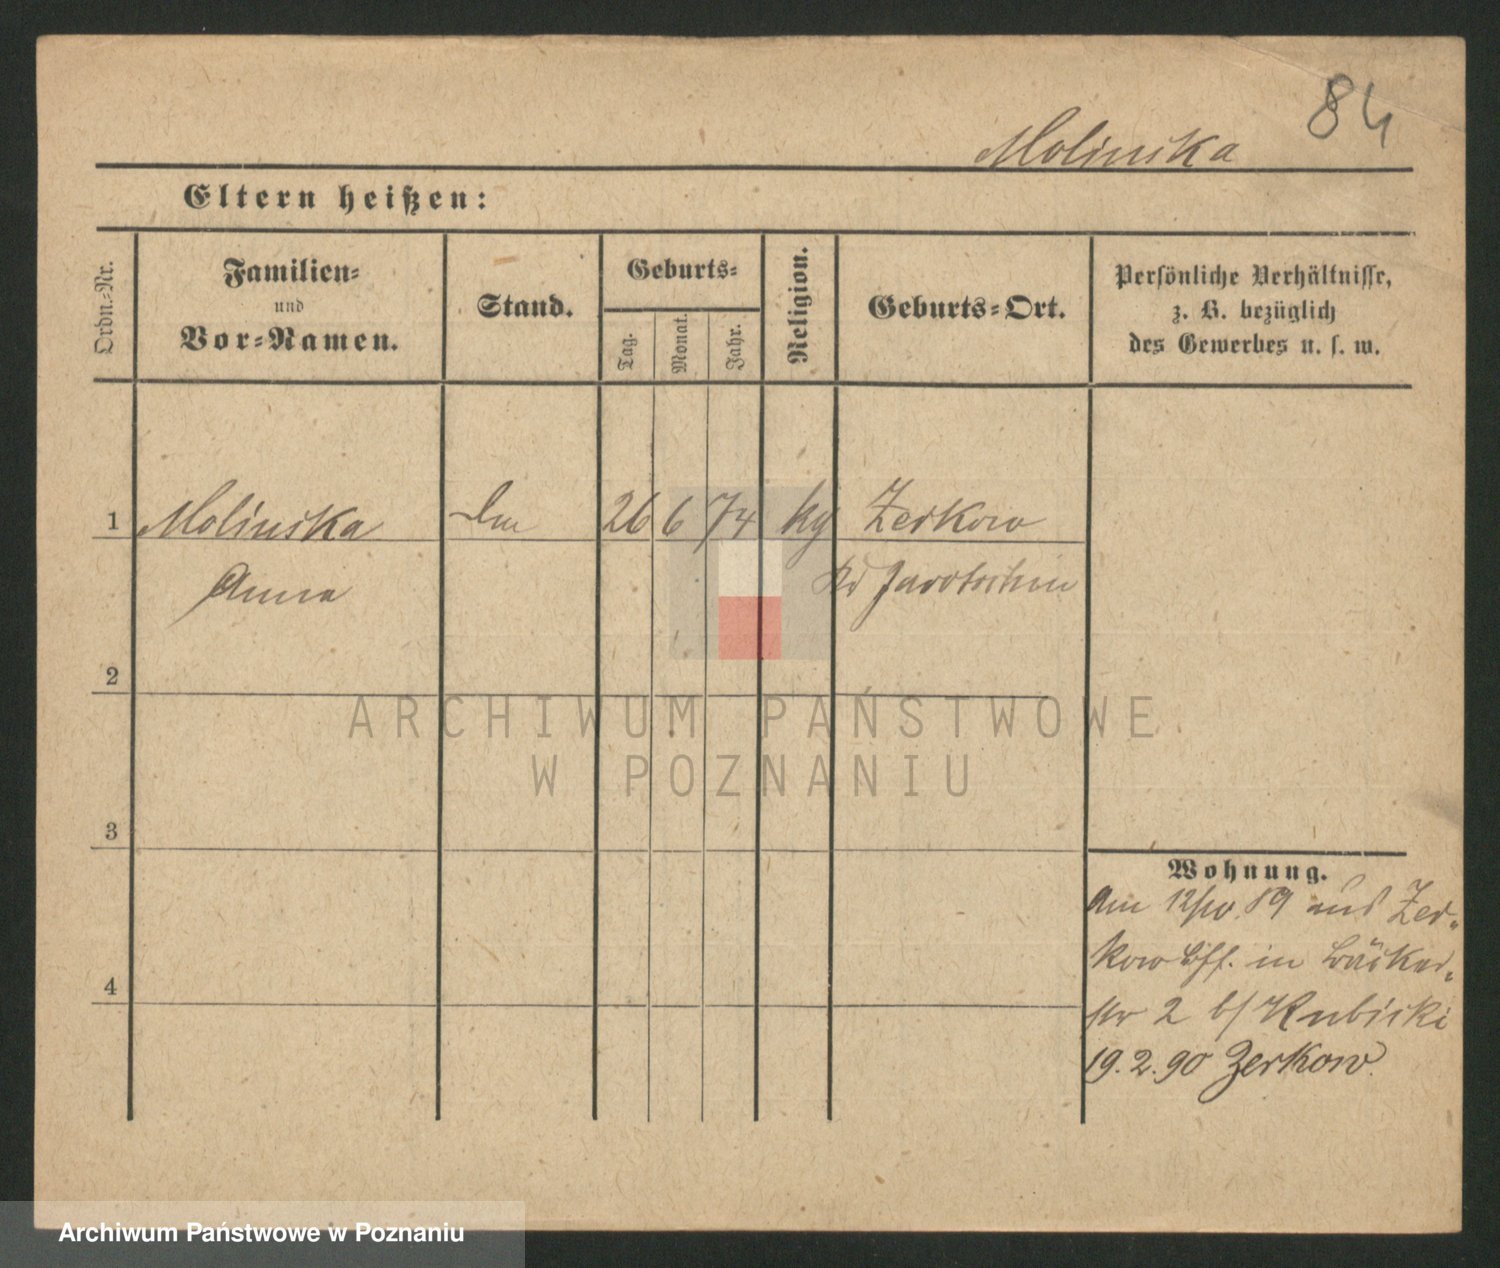 84
Molinska
Eltern heißen:
Ordn.-Nr.
Familien-
und
Vor-Namen.
Stand.
Geburts-
Tag.
Monat.
Jahr.
Religion.
Geburts-Ort.
Persönliche Verhältnisse,
z. B. bezüglich
des Gewerbes u. s. w.
1 Molinska 26 6 74 kg Zerkow
Anna Jarotschin
2
ARCHIWUM PAŃSTWOWE
W POZNANIU
3
4
Wohnung.
Am 12/10. 89 aus Zer-
kow in Bäcker-
str 2 b/ Kubicki
19.2.90 Zerkow.
Archiwum Państwowe w Poznaniu